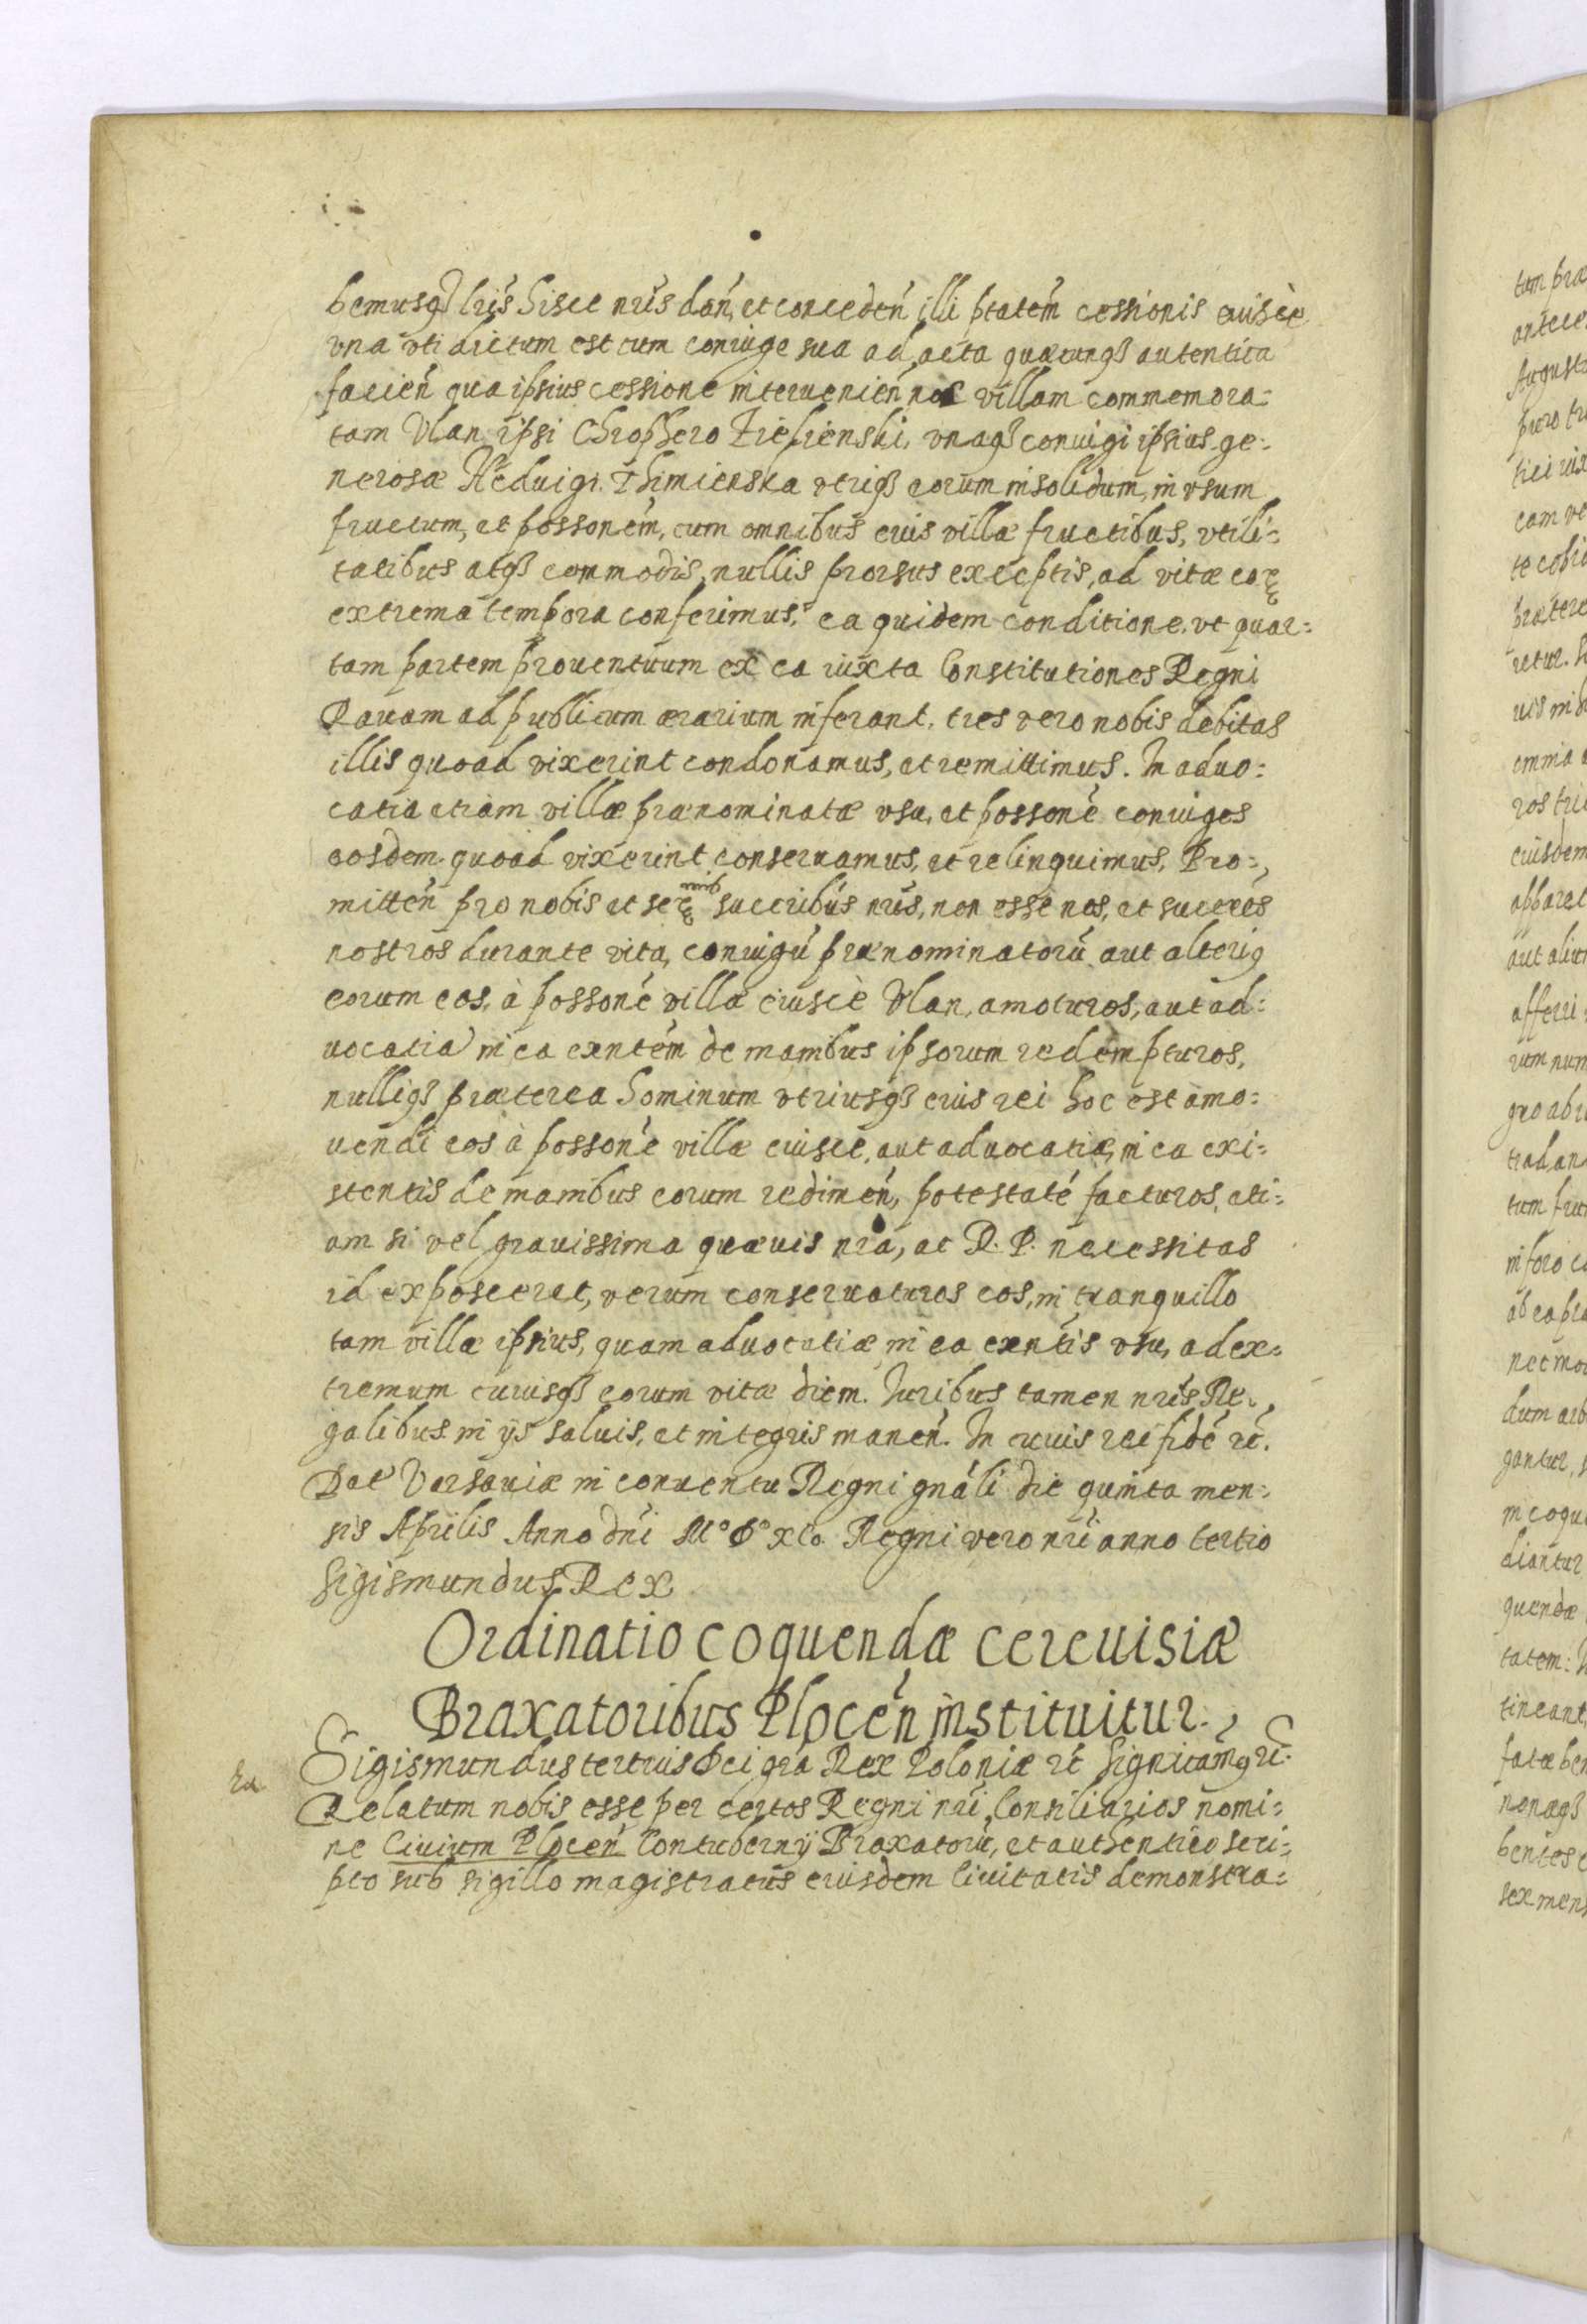 bemusq₃ lr̃is hisce nr̃is dan̄, et conceden̄ illi ptatem̄ cessionis eiuscè
vna vti dictum est cum coniuge sua ad acta quæcunq₃ autentica
facien̄ qua ipsius cessione intervenien̄ nos villam commemora=
tam Vlan, ipsi Chrophero Zielienski, vnaq₃ coniugi ipsius ge=
nerosæ Heduigi Thimienska vtriq₃ eorum insolidum, in vsum
fructum, et possonem̄, cum omnibus eius villæ fructibus, vtili=
tatibus atq₃ commodis, nullis prorsus exceptis, ad vitæ eoꝝ
extrema tempora conferimus, ea quidem conditione, vt quar=
tam partem prouentuum ex ea iuxta Constitutiones Regni
Rauam ad publicum ærarium inferant, tres vero nobis debitas
illis quoad vixerint condonamus, et remittimus. In aduo=
catia etiam villæ prænominatæ vsu, et possone coniuges
eosdem quoad vixerint conseruamus, et relinquimus, Pro=
mitten̄ pro nobis et seꝝmis succribus nr̃is, non esse nos, et succres
nostros durante vita, coniugū prænominatorū aut alteriꝯ
eorum eos, à possoné villæ eiuscè Vlan, amoturos, aut ad=
uocatiā in ea exntem̄ de manibus ipsorum redempturos,
nulliq₃ præterea hominum vtriusq₃ eius rei hoc est amo=
uendi eos à possone villæ eiuscè, aut aduocatiæ, in ea exi=
stentis de manibus eorum redimen̄, potestatē facturos, eti=
am si vel grauissima quæuis nr̃a, ac R. P. necessitas
id exposceret, verum conseruaturos eos, in tranquillo
tam villæ ipsius, quam aduocatiæ in ea exntis vsu, ad ex=
tremum cuiusq₃ eorum vitæ diem. Iuribus tamen nr̃is Re=
galibus in ijs saluis, et integris manen̄. In cuius rei fidē rc̄.
Dat Varsauiæ in conuentu Regni gnāli die quinta men=
sis Aprilis Anno dn̄i Mº Dº xCo Regni vero nr̃i anno tertio
Sigismundus Rex
Ordinatio coquendæ cereuisiæ
Braxatoribus Plocen̄ instituitur.
Sigismundus tertius Dei grā Rex Poloniæ rc̄ Significamꝯ rc̄.
Relatum nobis esse per certos Regni nr̃i Consiliarios nomi=
ne Ciuium Plocen̄ Contubernij Braxatorū, et authentico scri=
pto sub sigillo magistratus eiusdem Ciuitatis demonstra=